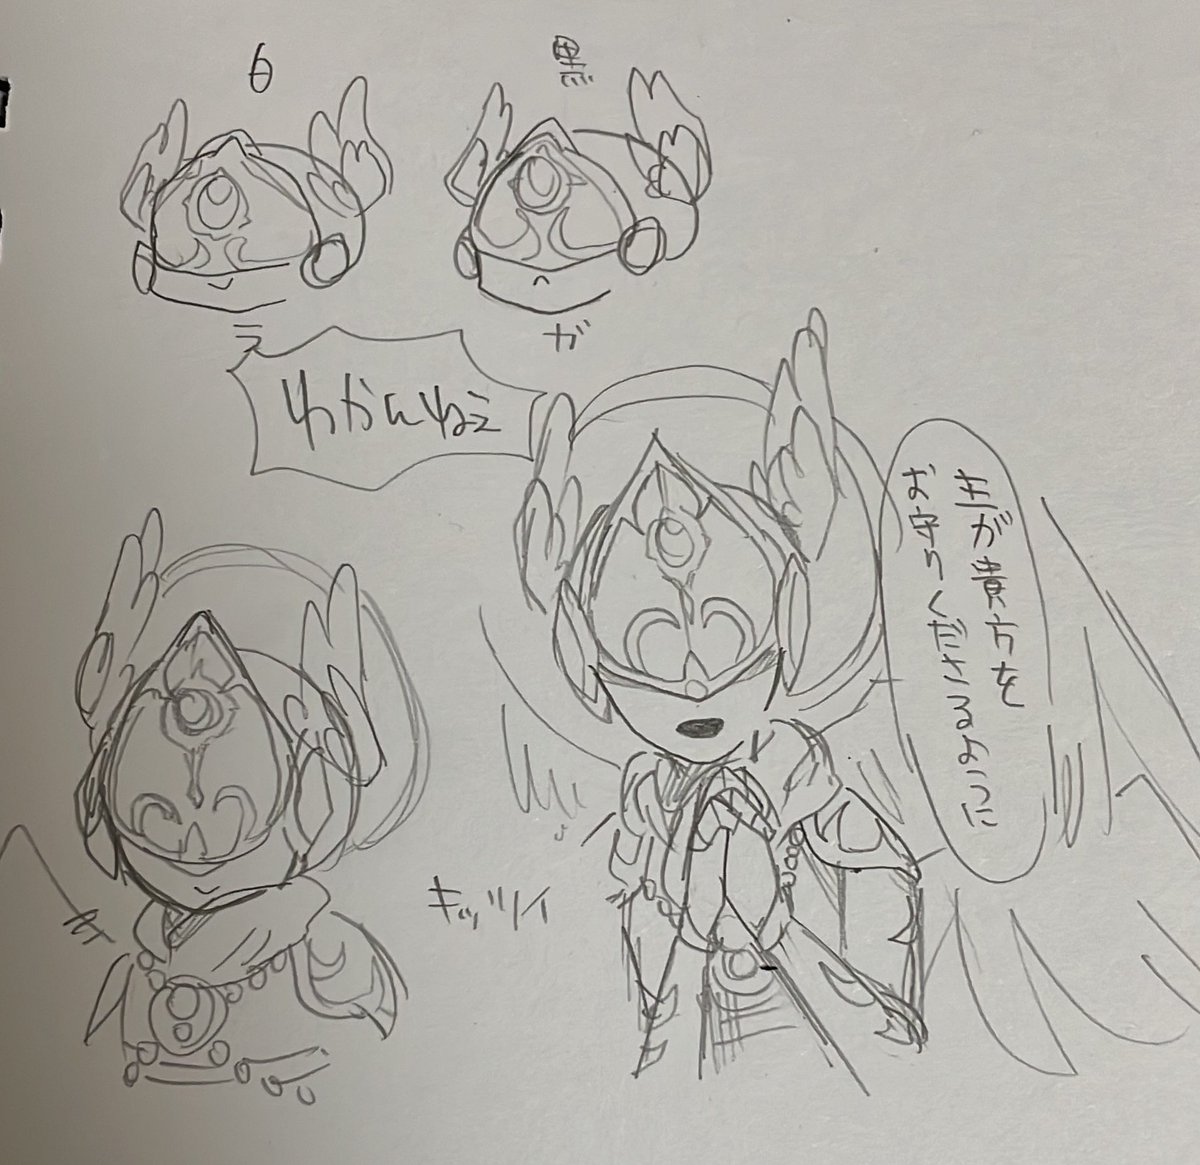 白
黒
ラ
が
わかんねぇ
主が貴方を
お守りくださるように
キッツイ